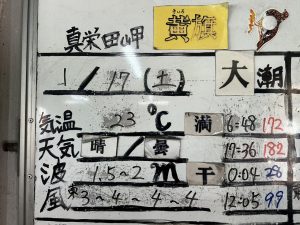 真栄田岬 黄旗
1/17(土) 大潮
気温 23℃ 満 6:48 172
天気 晴/曇 17:36 182
波 1.5~2m 干 0:04 28
風 東3~4~4~4 12:05 99